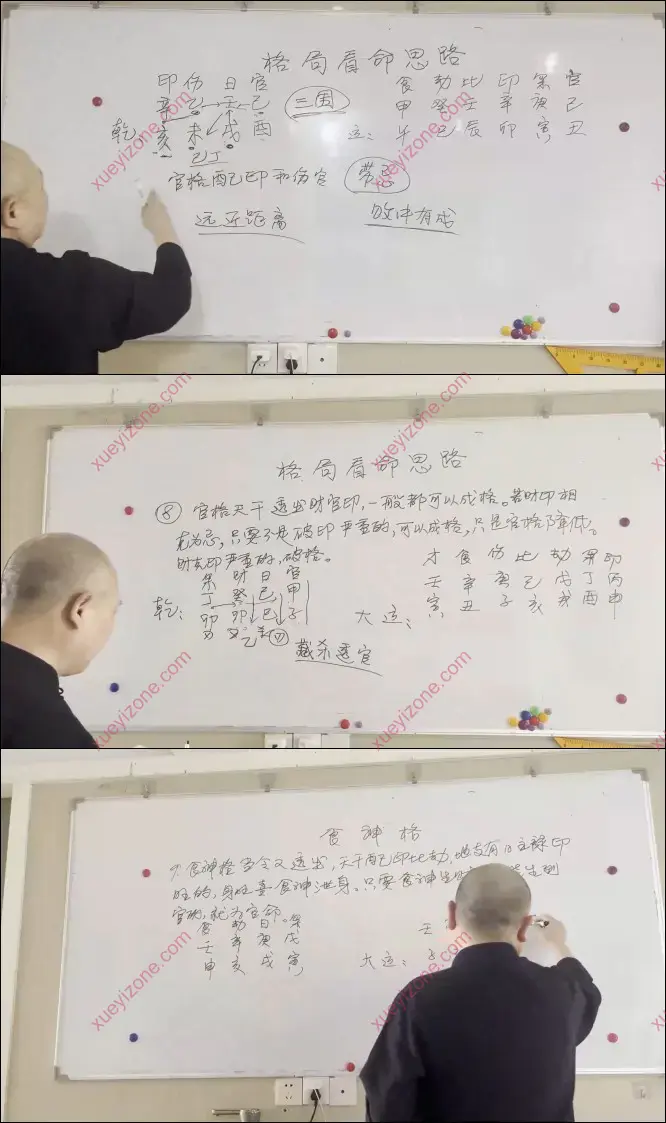 格局看命思路
印 伤 日 官
辛 乙 壬 己
乾: 亥 未 戌 酉
己丁
三围
食 劫 比 印 枭 官
甲 癸 壬 辛 庚 己
运: 午 巳 辰 卯 寅 丑
官格配印和伤官
带忌
远近距离
败中有成
xueyizone.com
xueyizone.com
xueyizone.com
格局看命思路
⑧ 官格天干透出财官印,一般都可以成格。若财印相
克为忌,只要不是破印严重的,可以成格,只是官格降低。
财克印严重的,破格。
枭 财 日 官
乾: 丁 癸 己 甲
卯 卯 巳 子
才 食 伤 比 劫 枭 印
壬 辛 庚 己 戊 丁 丙
大运: 寅 丑 子 亥 戌 酉 申
藏杀透官
xueyizone.com
xueyizone.com
xueyizone.com
食神格
食神格当令又透出,天干配印比劫,地支有日主禄印
旺的,身旺喜食神泄身。只要食神生
官的,就为富命。
食 劫 日 枭
壬 辛 庚 戊
申 亥 戌 寅
壬
大运: 子
xueyizone.com
xueyizone.com
xueyizone.com